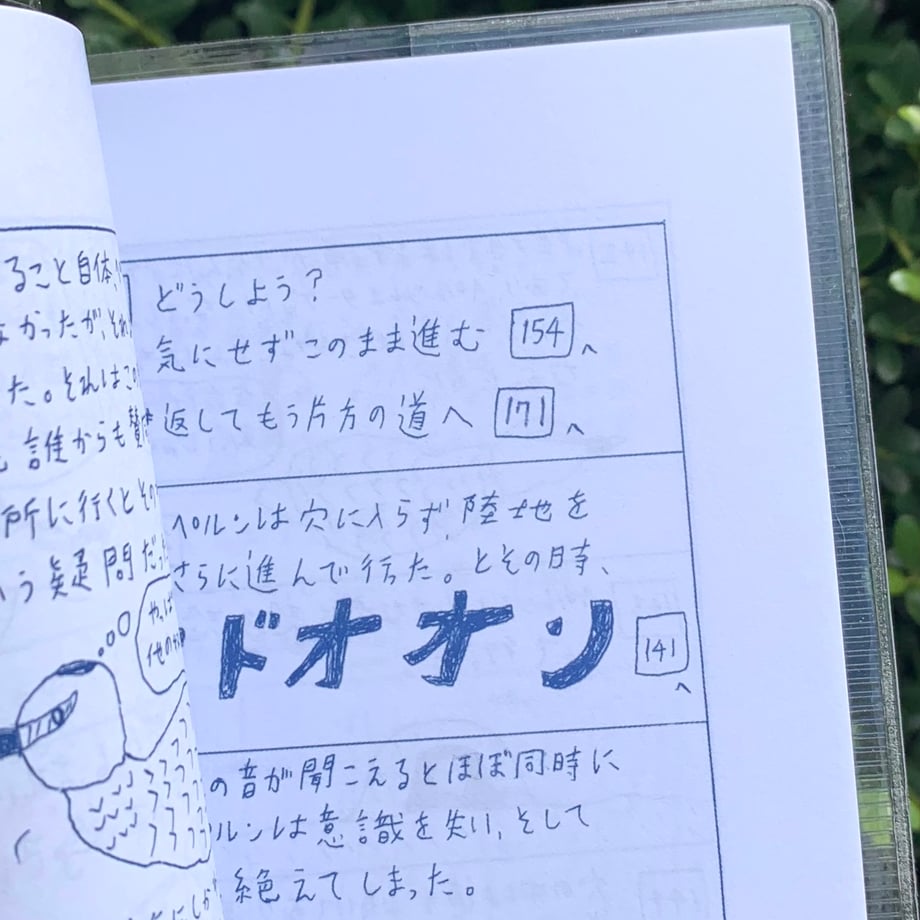 ること自体
なかったが、それ
た。それはこの
誰からも賛
所に行くとその
う疑問だっ
やっぱ
他の
どうしよう?
気にせずこのまま進む 154 へ
返してもう片方の道へ 171 へ
ペルンは穴に入らず、陸地を
さらに進んで行った。とその時、
ドオオン 141 へ
の音が聞こえるとほぼ同時に
ルンは意識を失い、そして
絶えてしまった。